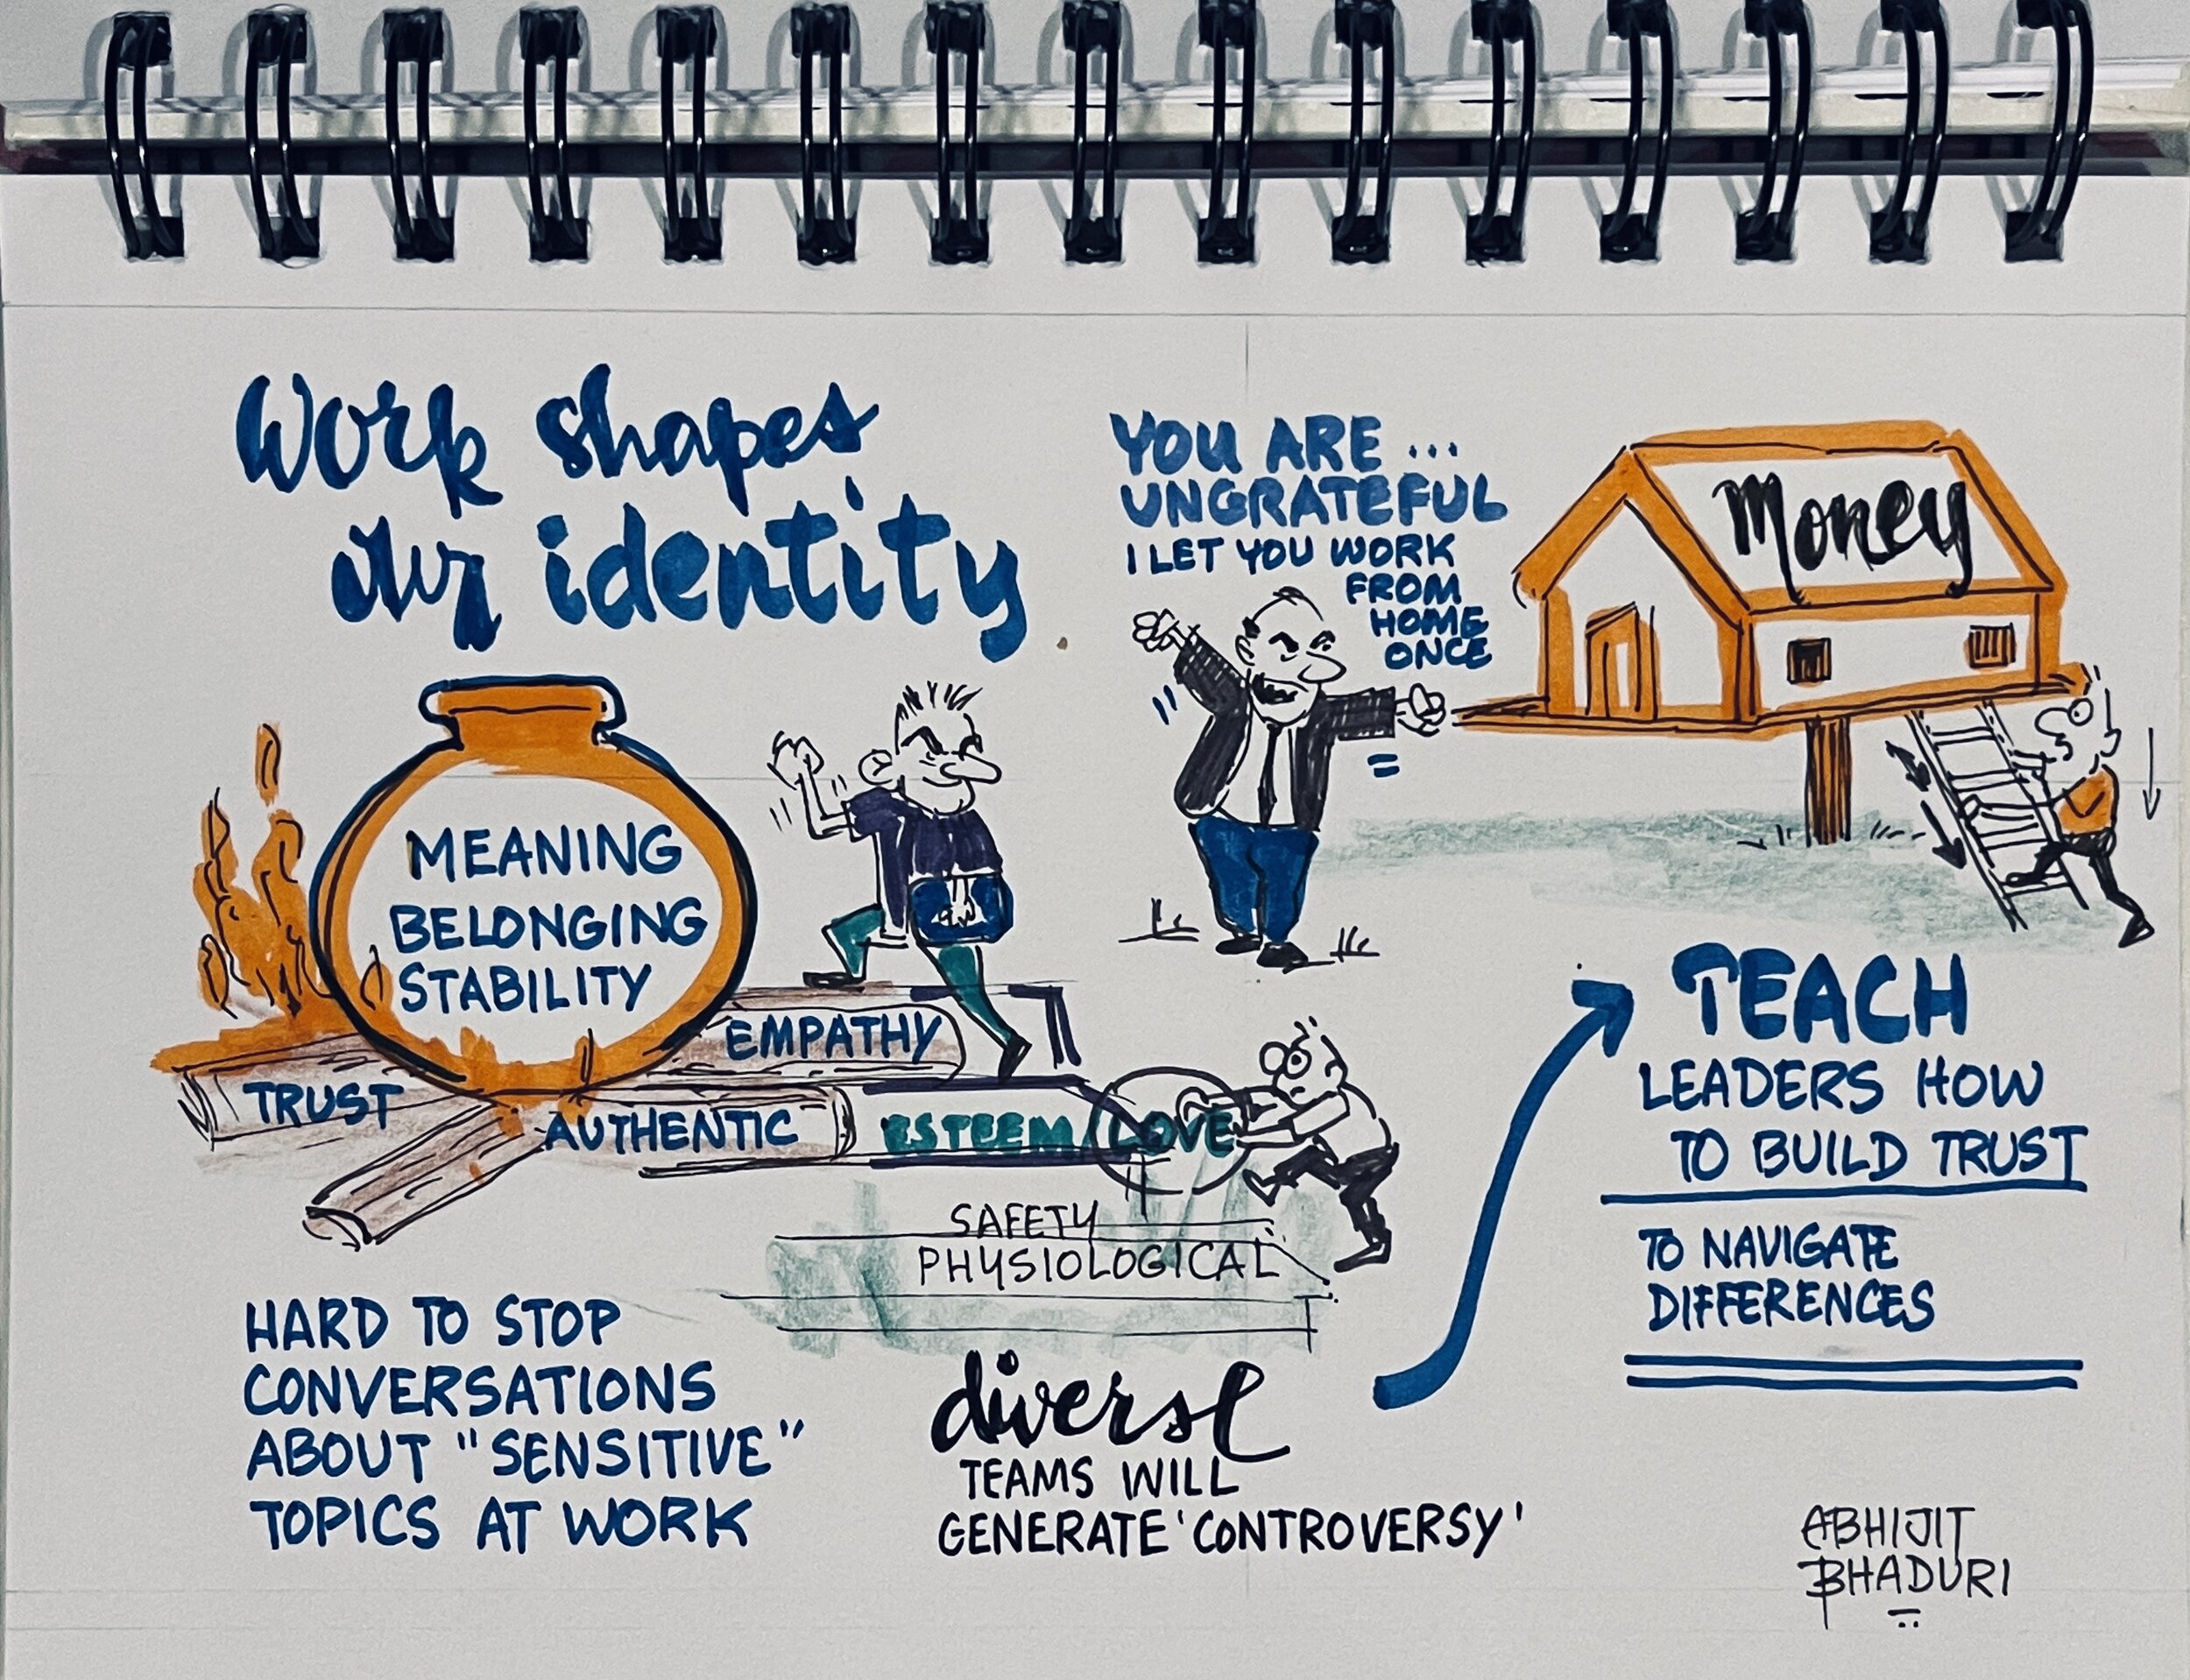 Work shapes
our identity
YOU ARE ...
UNGRATEFUL
I LET YOU WORK
FROM
HOME
ONCE
Money
MEANING
BELONGING
STABILITY
EMPATHY
TRUST
AUTHENTIC
ESTEEM
LOVE
SAFETY
PHYSIOLOGICAL
HARD TO STOP
CONVERSATIONS
ABOUT "SENSITIVE"
TOPICS AT WORK
diverse
TEAMS WILL
GENERATE 'CONTROVERSY'
TEACH
LEADERS HOW
TO BUILD TRUST
TO NAVIGATE
DIFFERENCES
ABHIJIT
BHADURI